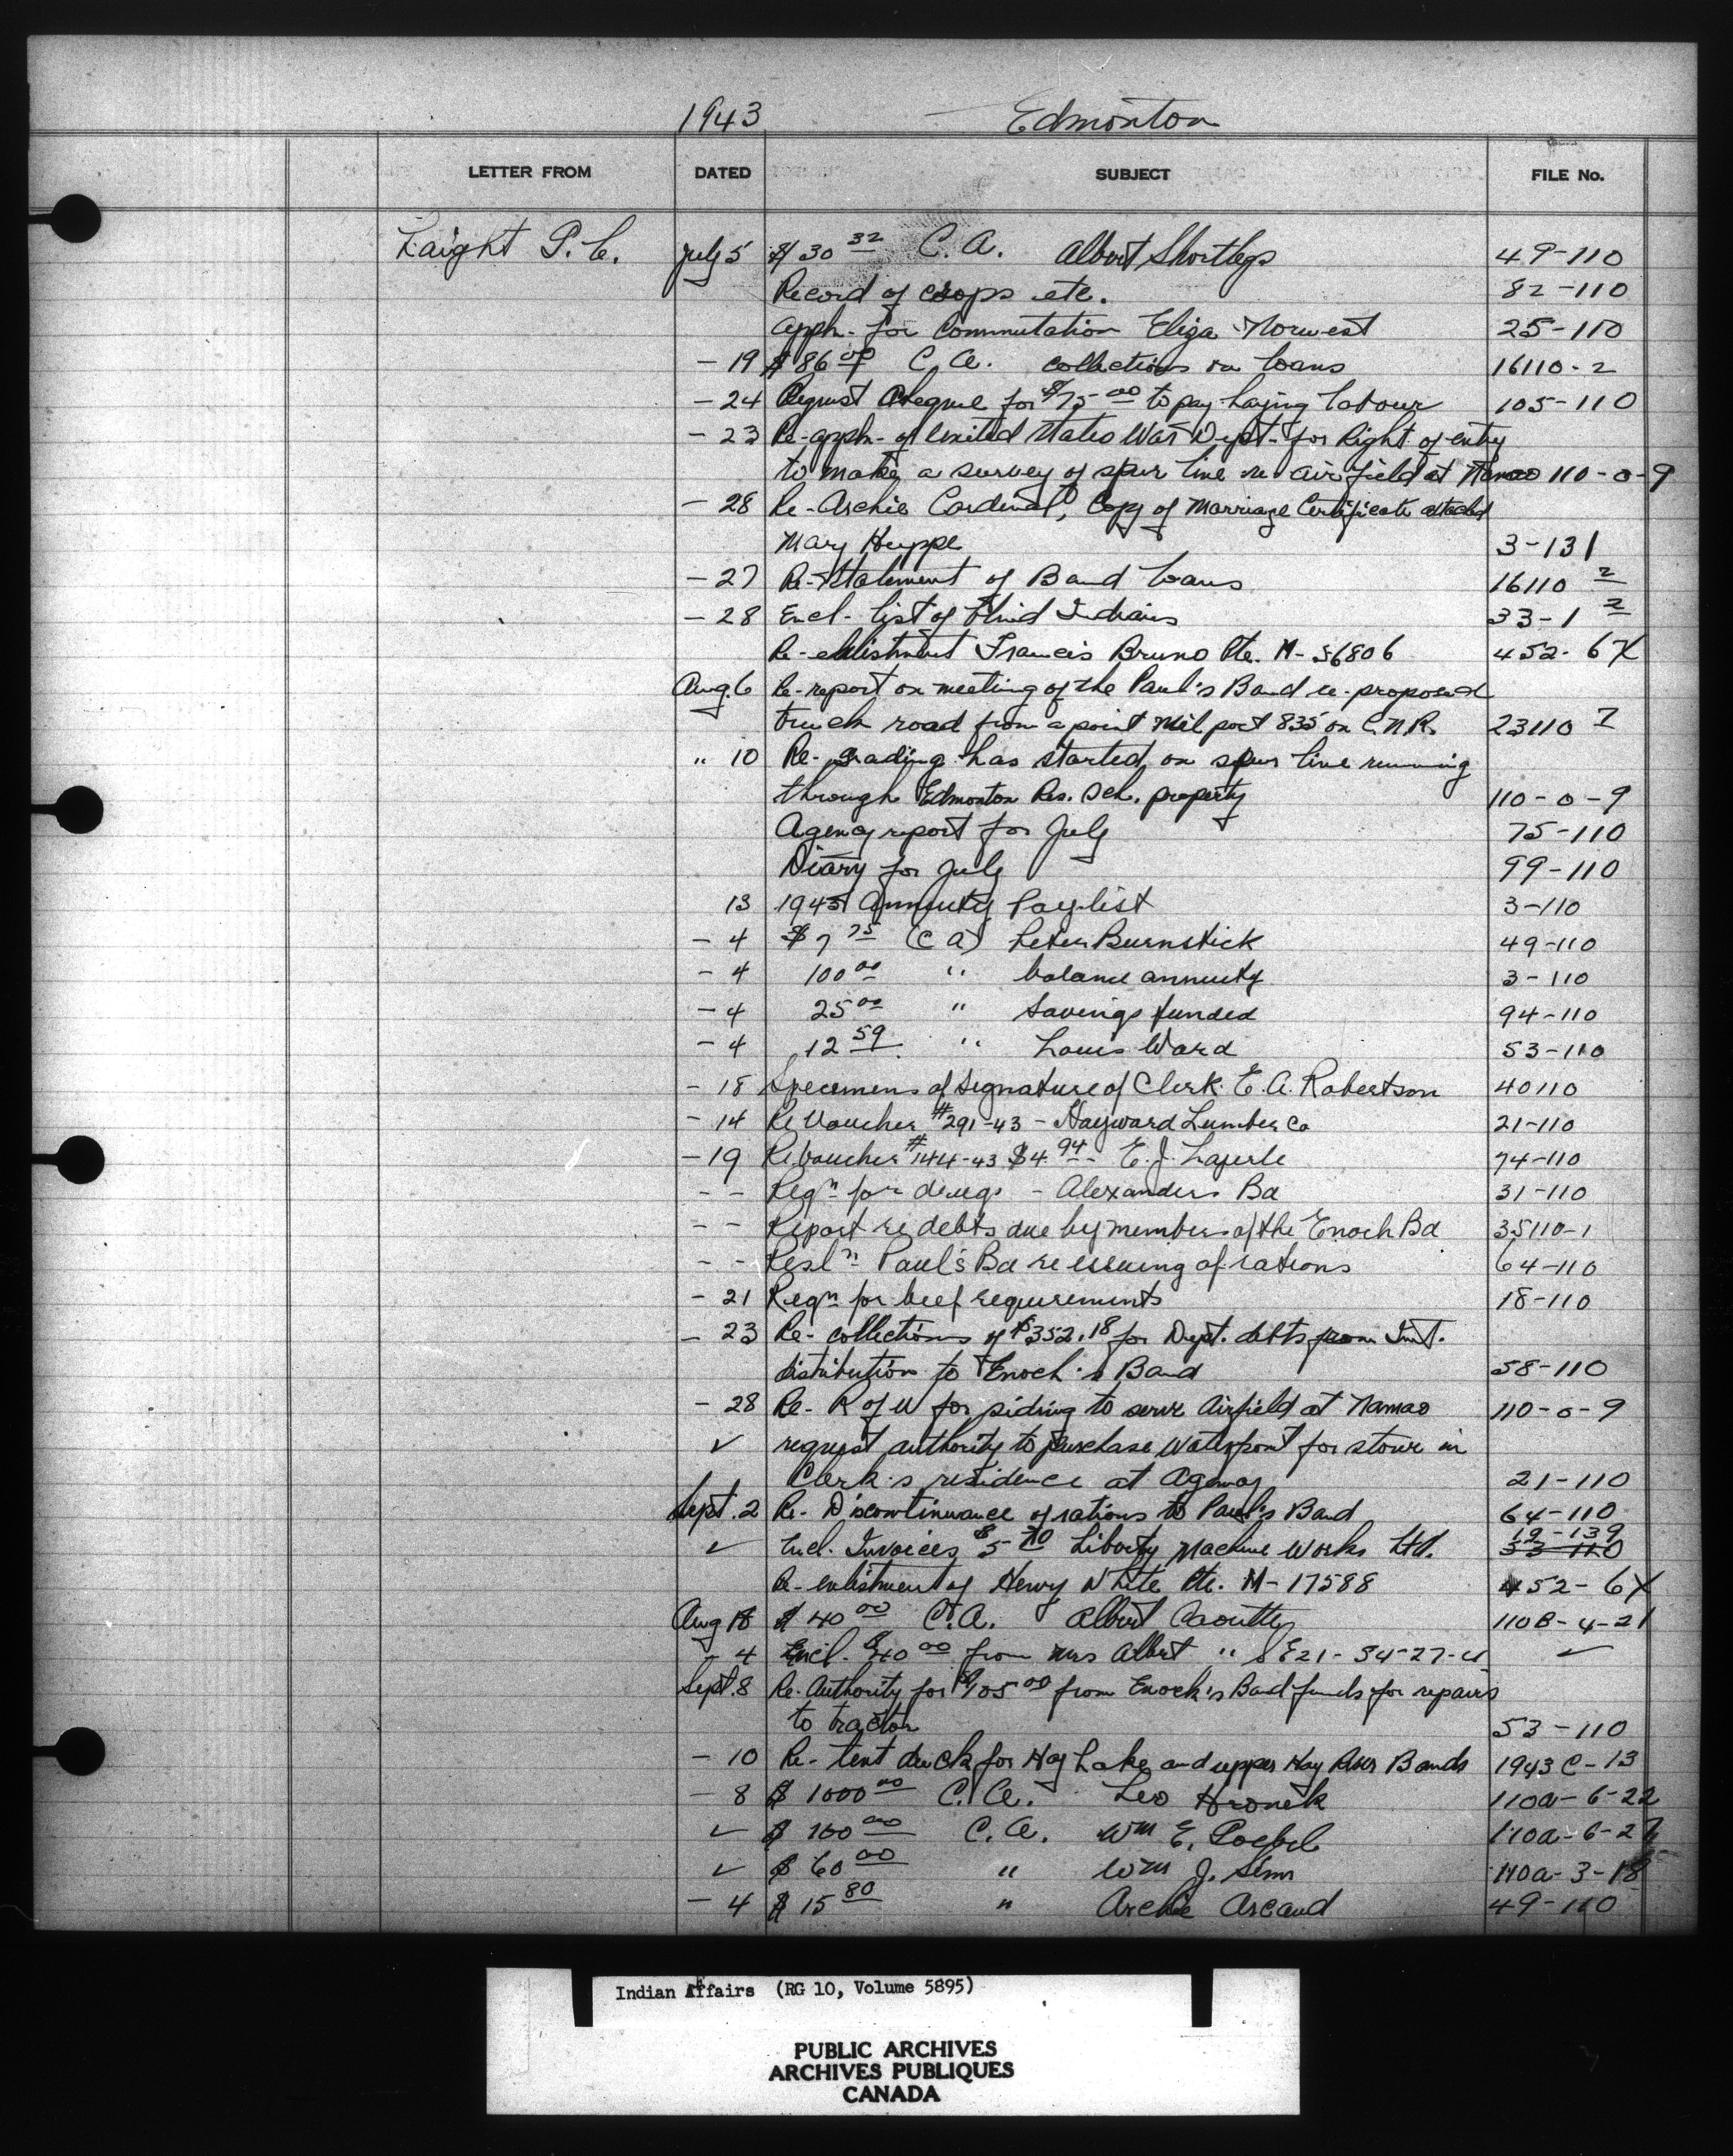 1943 Edmonton
LETTER FROM DATED SUBJECT FILE No.
Laight P. C. July 5 $30 32 C. A. Albert Shortlegs 49-110
Record of crops etc. 82-110
Appln. for Commutation Eliza Norwest 25-110
- 19 $86 00 C. A. collections on loans 16110-2
- 24 Request cheque for $75 00 to pay haying labour 105-110
- 23 Re-appln- of United States War Dept- for Right of entry
to make a survey of spur line re airfield at Namao 110-0-9
- 28 Re-Archie Cardinal, Copy of Marriage Certificate attached
Mary Huppe 3-131
- 27 Re-Statement of Band Loans 16110 2
- 28 Encl- list of Blind Indians 33-1 2
Re-enlistment Francis Bruno Pte. M-56806 452-6X
Aug. 6 Re-report on meeting of the Paul's Band re-proposed
truck road from a point Mil post 835 on C.N.R. 23110 7
" 10 Re-grading has started on spur line running
through Edmonton Res. Sch. property 110-0-9
Agency report for July 75-110
Diary for July 99-110
13 1943 Annuity Paylist 3-110
- 4 $7 75 (C A) Peter Burnstick 49-110
- 4 100 00 " balance annuity 3-110
- 4 25 00 " Savings funded 94-110
- 4 12 59 " Louis Ward 53-110
- 18 Specimens of signature of Clerk E. A. Robertson 40110
- 14 Re Voucher #291-43 - Hayward Lumber Co 21-110
- 19 Re voucher #144-43 $4.94- E. J. Laperle 74-110
- - Reqn for drugs - Alexanders Bd 31-110
- - Report re debts due by members of the Enoch Bd 35110-1
- - Resln Paul's Bd re issuing of rations 64-110
- 21 Reqn for beef requirements 18-110
- 23 Re- collections of $352.18 for Dept. debts from Int.
distribution to Enoch's Band 58-110
- 28 Re- R of W for siding to serve Airfield at Namao 110-0-9
✓ request authority to purchase Waterfront for stove in
Clerk's residence at Agency 21-110
Sept. 2 Re- Discontinuance of rations to Paul's Band 64-110
19-139
✓ Encl. Invoices $5 70 Liberty Machine Works Ltd. 33-110
Re-enlistment of Henry White Pte. M-17588 452-6X
Aug 18 $40 00 C. A. Albert 110B-4-21
- 4 Encl. $40 00 from Mrs Albert " SE21-34-27-4 ✓
Sept. 8 Re-Authority for $105 00 from Enoch's Band funds for repairs
to tractor 53-110
- 10 Re- tent duck for Hay Lake and upper Hay River Bands 1943C-13
- 8 $1000 00 C. A. Leo Hronek 110a-6-22
✓ $100 00 C. A. Wm E. Poebel 110a-6-27
✓ $60 00 " Wm J. Sims 110a-3-18
- 4 $15 80 " Archie Arcand 49-110
Indian Affairs (RG 10, Volume 5895)
PUBLIC ARCHIVES
ARCHIVES PUBLIQUES
CANADA